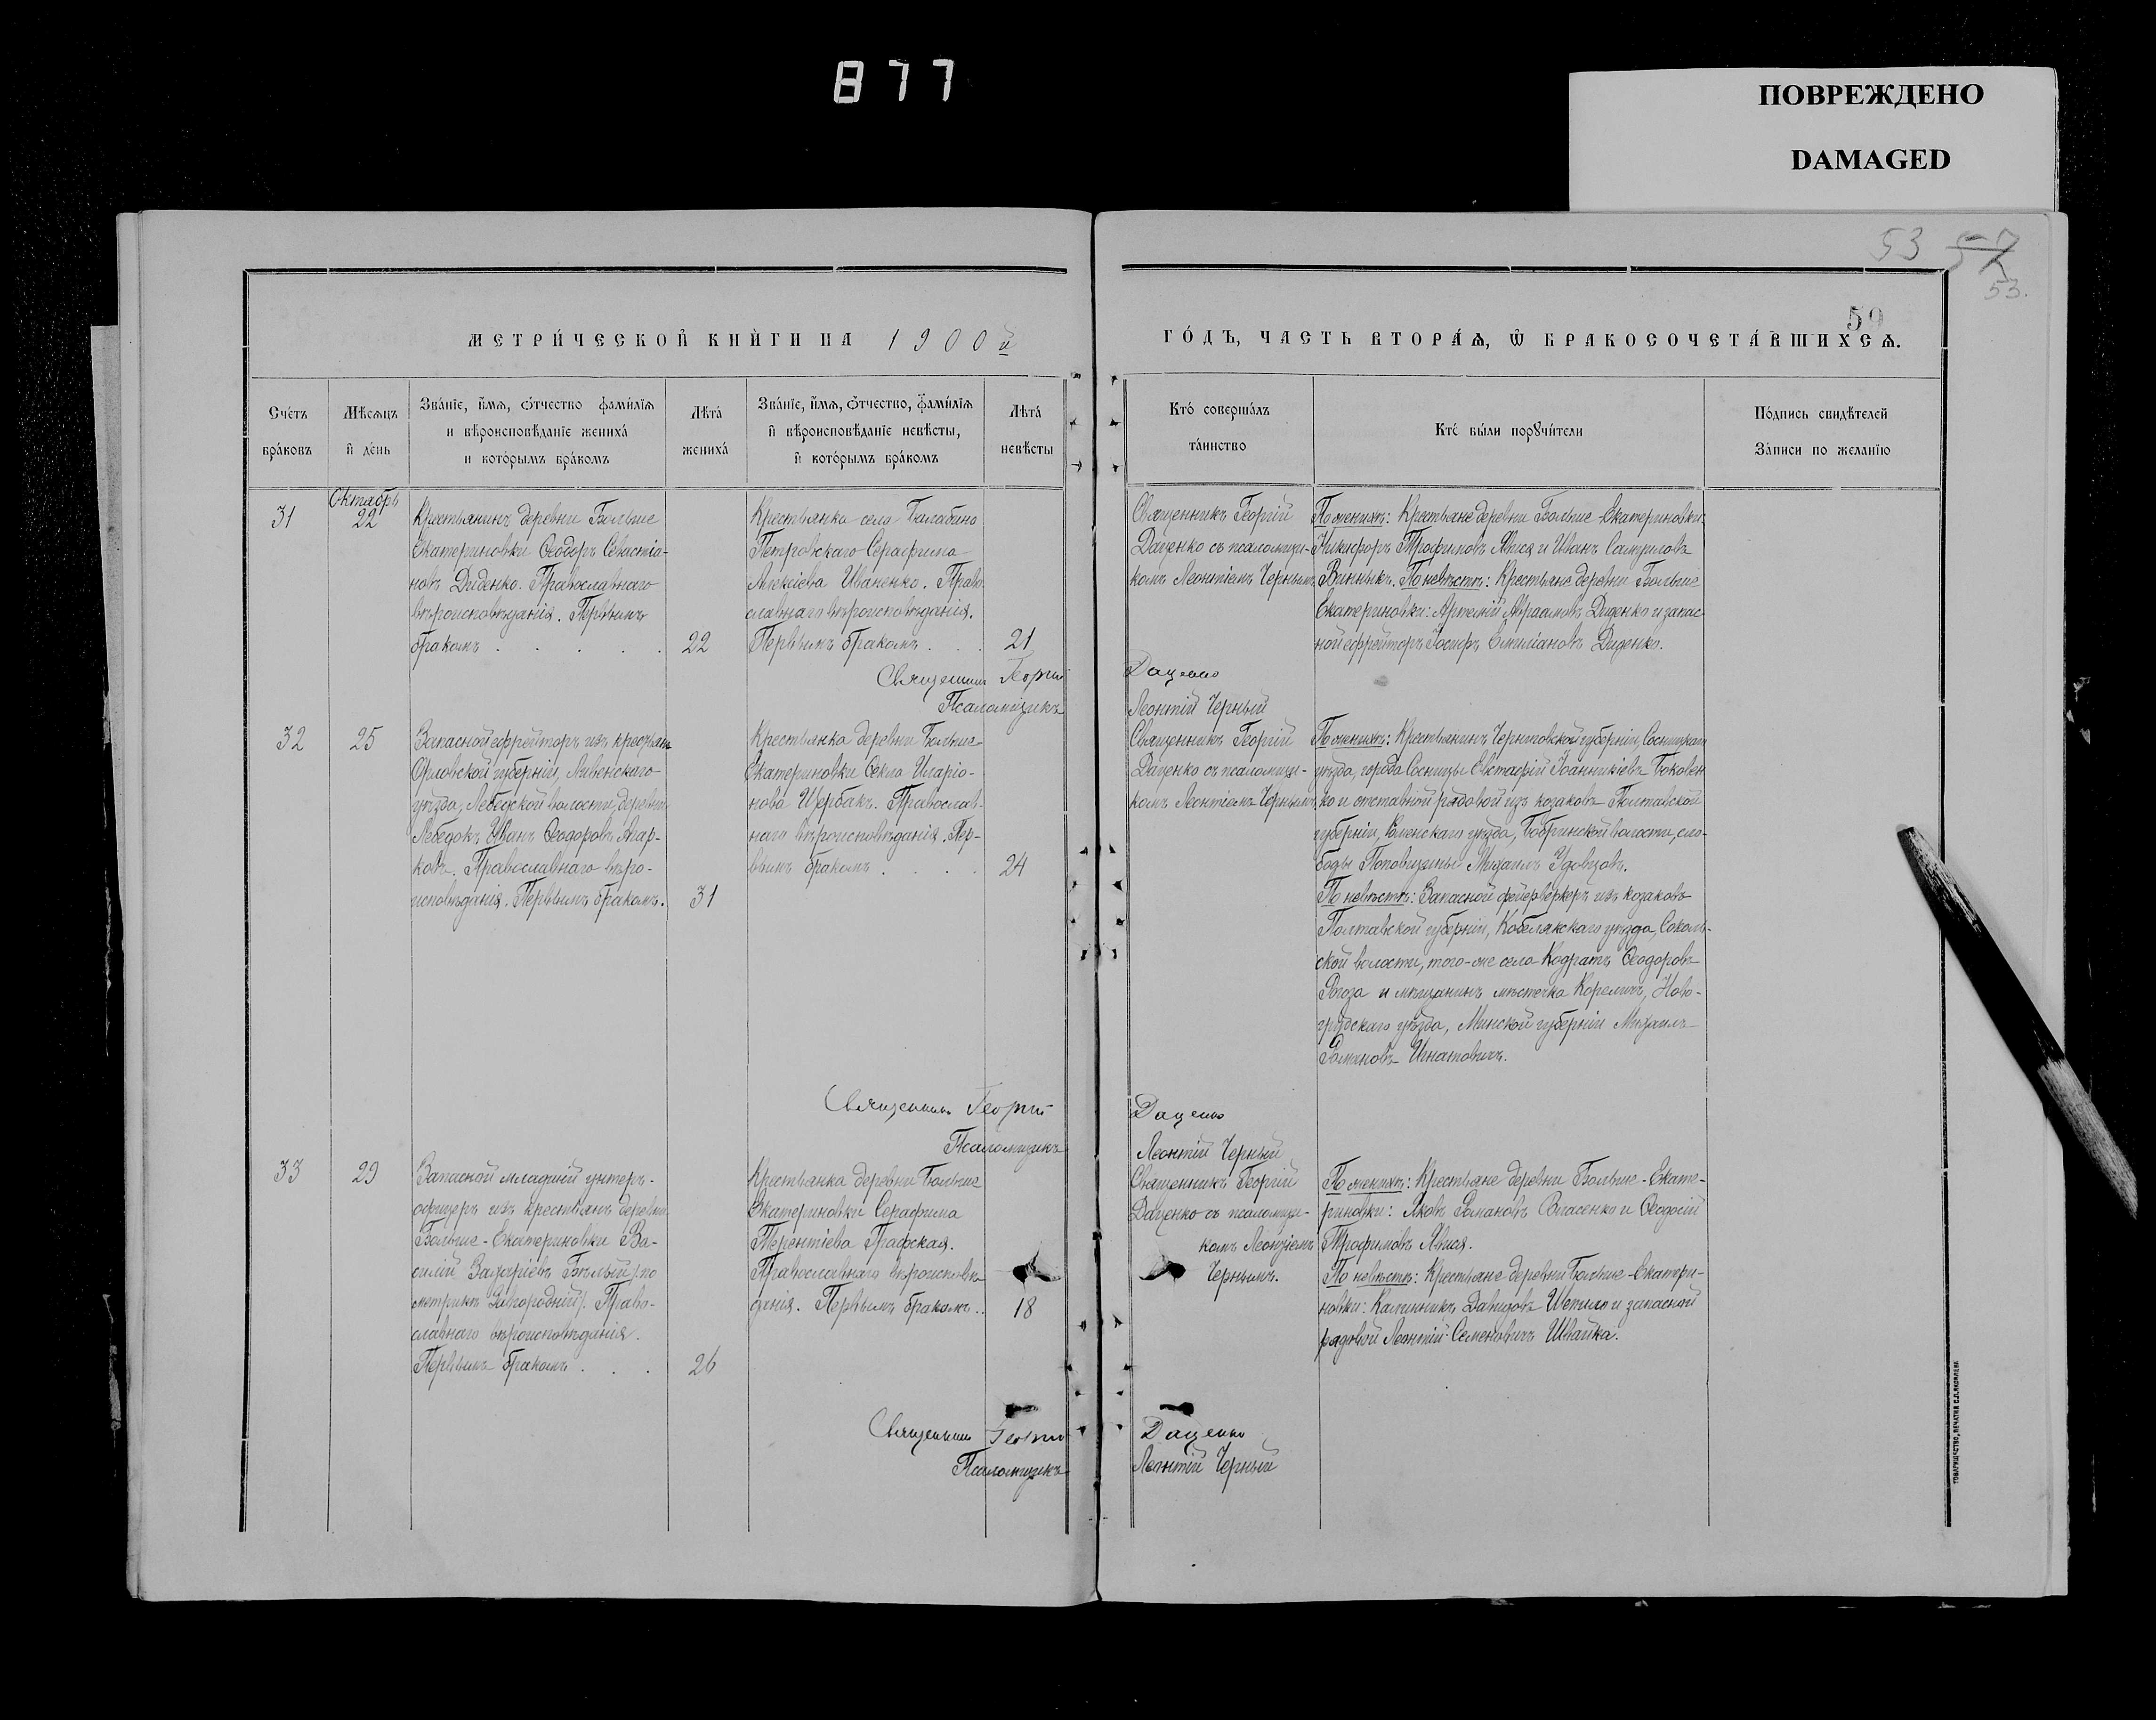 877
ПОВРЕЖДЕНО
DAMAGED
53 57
53.
50
МЕТРИ́ЧЕСКОЙ КНИ́ГИ НА 1900й
ГО́ДЪ, ЧАСТЬ ВТОРА́Ѧ, Ѽ БРАКОСОЧЕТА́ВШИХСѦ.
Сче́тъ
бра́ковъ
Мѣ́сѧцъ
и҆ де́нь
Зва́нїе, и҆́мѧ, ѻ҆́тчество фамѝлїѧ
и вѣроисповѣ́данїе жениха̀
и кото́рымъ бра́комъ
Лѣ́та
жениха̀
Зва́нїе, и҆́мѧ, ѻ҆́тчество, фами́лїѧ
и҆ вѣроисповѣ́данїе невѣ́сты,
и҆ кото́рымъ бра́комъ
Лѣ́та
невѣ́сты
Кто̀ соверша́лъ
та́инство
Кто̀ бы́ли порꙋчи́тели
По́дпись свидѣ́телей
За́писи по жела́нїю
31
Октябрь
22
Крестьянинъ деревни Больше
Екатериновки Ѳеодоръ Севастіа-
новъ Диденко. Православнаго
вѣроисповѣданія. Первымъ
бракомъ . . . . .
22
Крестьянка села Балабино
Петровскаго Серафима
Алексіева Иваненко. Право
славнаго вѣроисповѣданія.
Первымъ бракомъ . . .
21
Священникъ Георгій
Даценко съ псаломщи-
комъ Леонтіемъ Чернымъ
По женихѣ: Крестьяне деревни Больше-Екатериновки:
Никифоръ Трофимовъ Явися и Иванъ Самуиловъ
Винникъ. По невѣстѣ: Крестьяне деревни Больше
Екатериновки: Артемій Авраамовъ Диденко и запас-
ной ефрейторъ Іосифъ Емиліановъ Диденко.
Священникъ Георгій Даценко
Псаломщикъ Леонтій Черный
32
25
Запасной ефрейторъ изъ крестьянъ
Орловской губерніи, Ливенскаго
уѣзда, Лебедской волости, деревни
Лебедокъ Иванъ Ѳеодоровъ Агар-
ковъ. Православнаго вѣро-
исповѣданія. Первымъ бракомъ.
31
Крестьянка деревни Больше
Екатериновки Ѳекла Иларіо-
нова Щербакъ. Православ-
наго вѣроисповѣданія. Пер-
вымъ бракомъ . . . .
24
Священникъ Георгій
Даценко съ псаломщи-
комъ Леонтіемъ Чернымъ
По женихѣ: Крестьянинъ Черниговской губерніи, Сосницкаго
уѣзда, города Сосницы Евстафій Іоанникіевъ Боковен
ко и отставной рядовой изъ козаковъ Полтавской
губерніи, Роменскаго уѣзда, Бобринской волости, сло-
боды Поповщины Михаилъ Удовцовъ.
По невѣстѣ: Запасной фейерверкеръ изъ козаковъ
Полтавской губерніи, Кобелякскаго уѣзда, Соколь-
ской волости, того-же села Кодратъ Ѳеодоровъ
Рогоза и мѣщанинъ мѣстечка Кореличъ, Ново-
грудскаго уѣзда, Минской губерніи Михаилъ
Романовъ Игнатовичъ.
Священникъ Георгій Даценко
Псаломщикъ Леонтій Черный
33
29
Запасной младшій унтеръ-
офицеръ изъ крестьянъ деревни
Больше-Екатериновки Ва-
силій Захаріевъ Бѣлый (по
метрикѣ Завгородній). Право-
славнаго вѣроисповѣданія.
Первымъ бракомъ . . .
26
Крестьянка деревни Больше
Екатериновки Серафима
Терентіева Графская.
Православнаго вѣроисповѣ
данія. Первымъ бракомъ ..
18
Священникъ Георгій
Даценко съ псаломщи-
комъ Леонтіемъ
Чернымъ.
По женихѣ: Крестьяне деревни Больше-Екате-
риновки: Яковъ Романовъ Власенко и Ѳеодосій
Трофимовъ Явися.
По невѣстѣ: Крестьяне деревни Больше-Екатери-
новки: Калинникъ Давидовъ Шепило и запасной
рядовой Леонтій Семеновичъ Швайка.
Священникъ Георгій Даценко
Псаломщикъ Леонтій Черный
ТОВАРИЩЕСТВО, ПЕЧАТНЯ С.П.ЯКОВЛЕВА